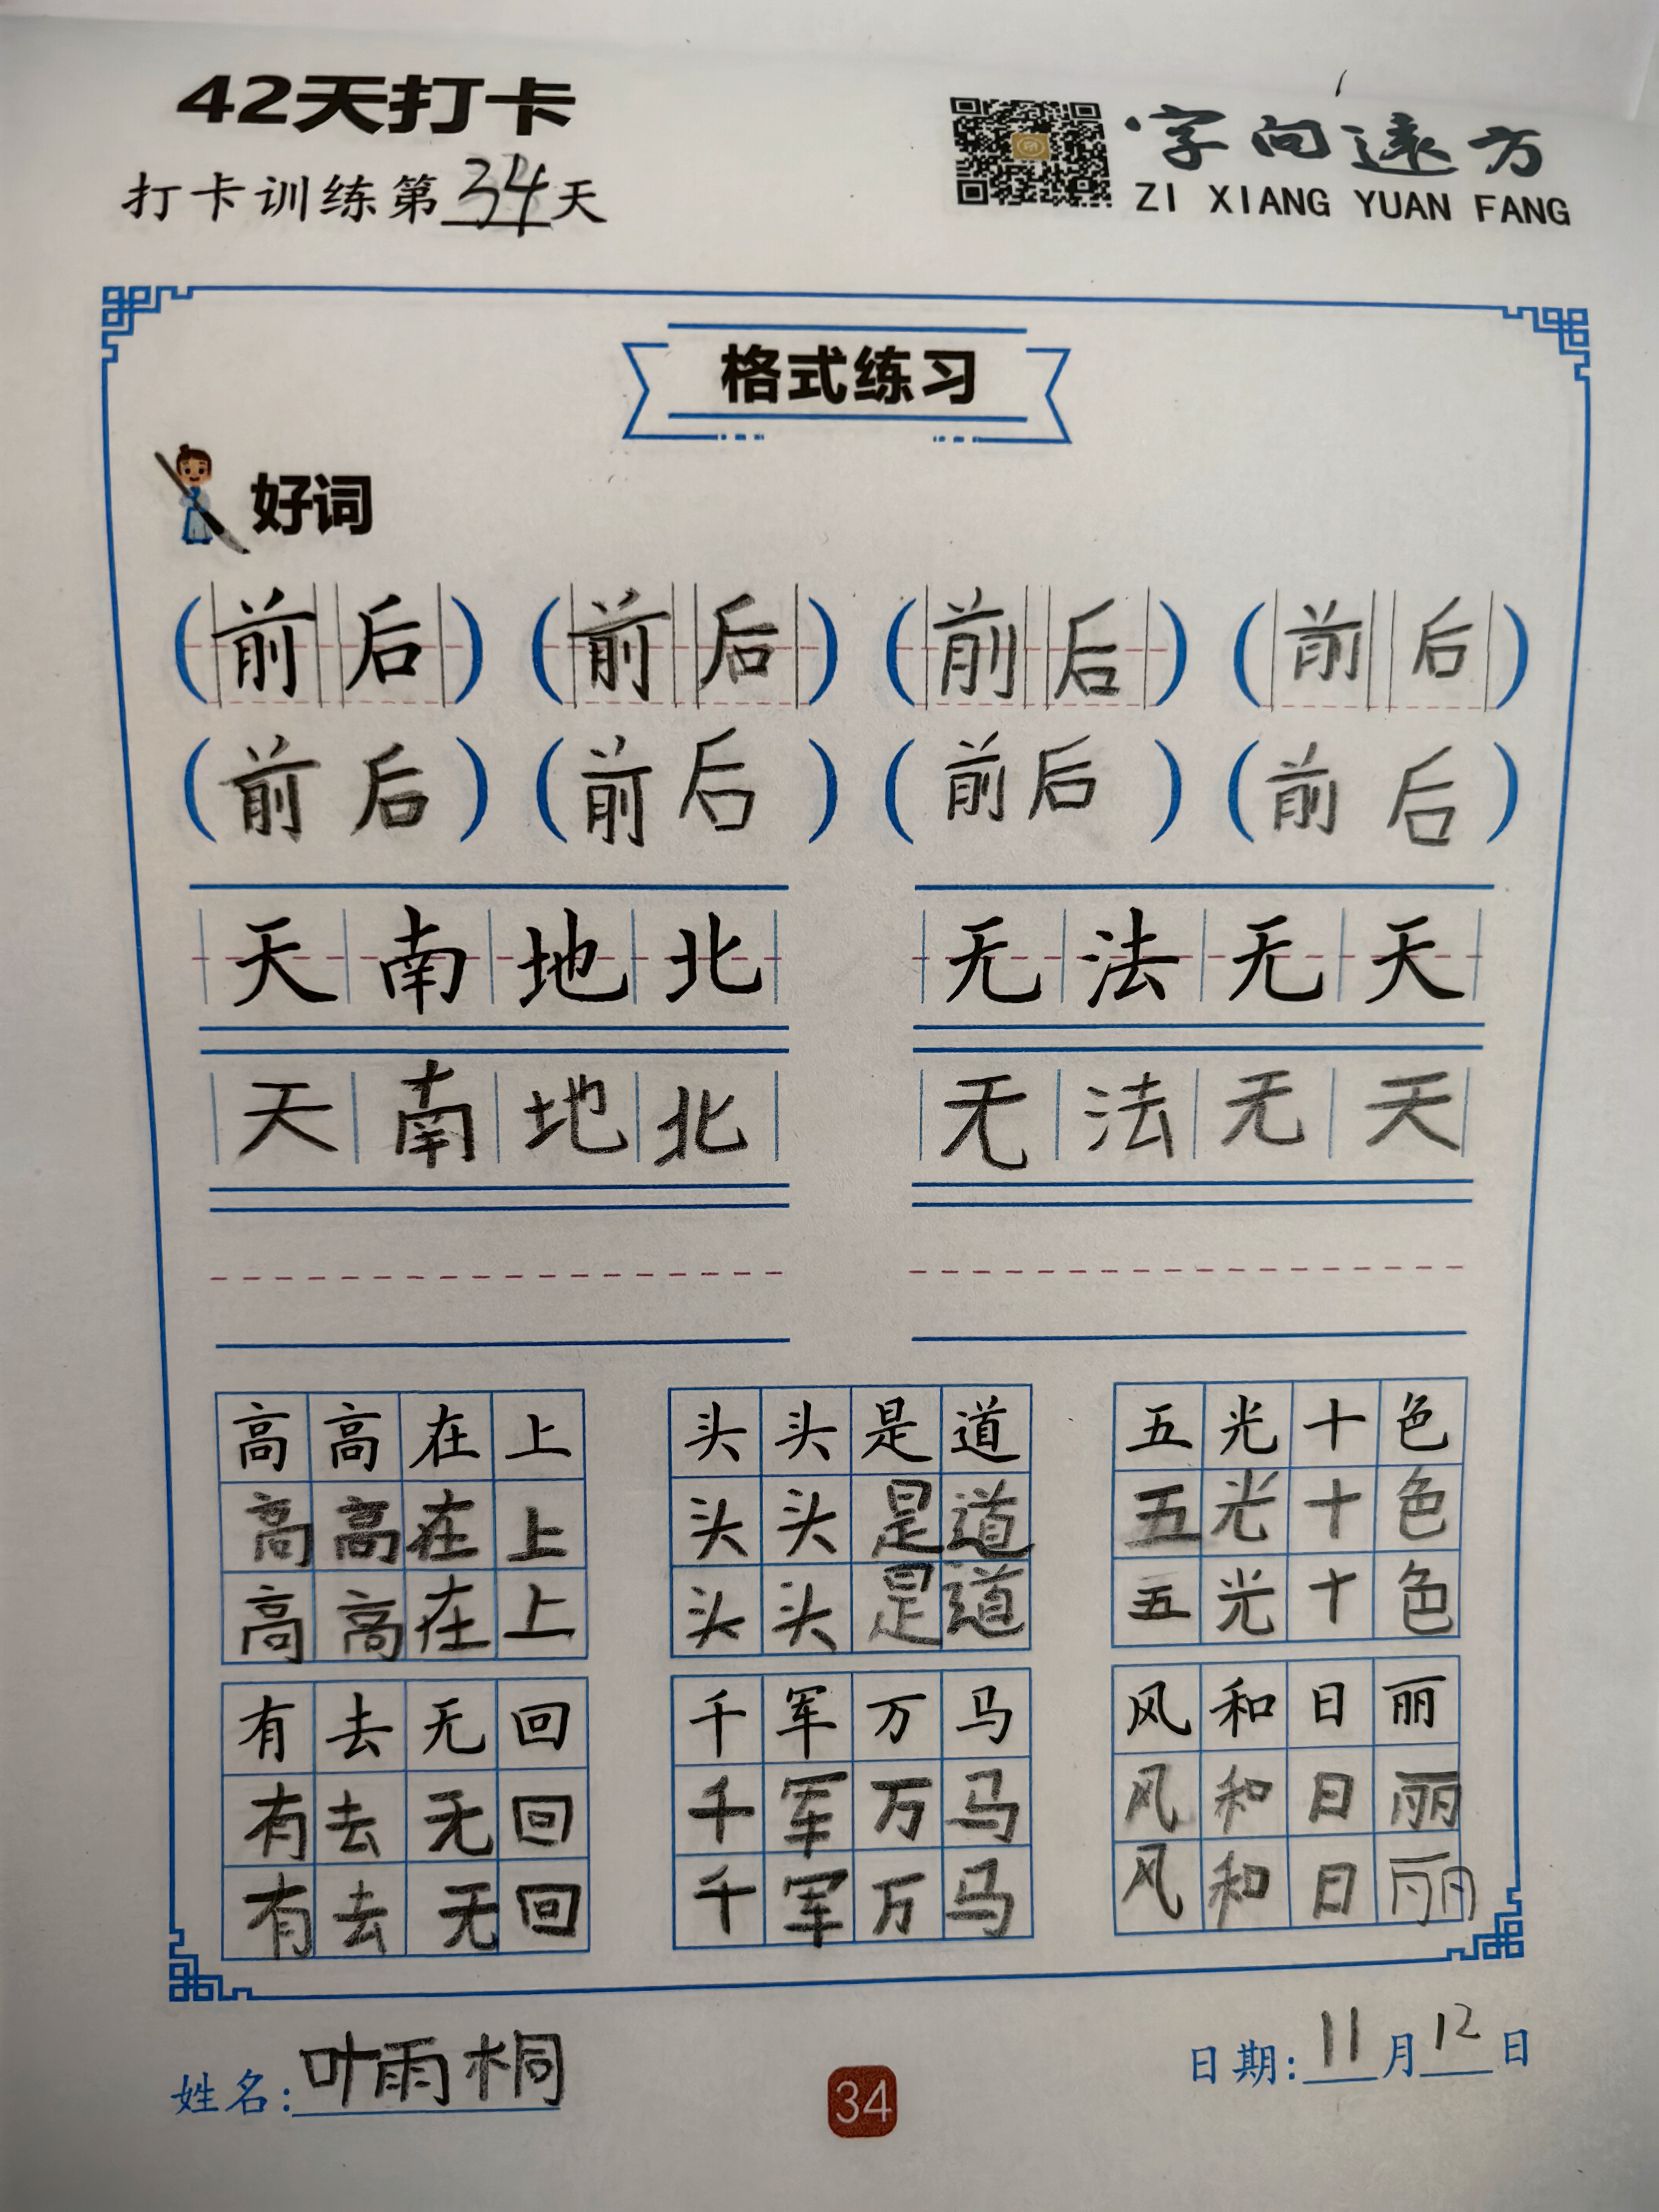 42天打卡
字向遠方
打卡训练第34天
ZI XIANG YUAN FANG
格式练习
好词
(前后) (前后) (前后) (前后)
(前后) (前后) (前后) (前后)
天南地北 无法无天
天南地北 无法无天
高高在上 头头是道 五光十色
高高在上 头头是道 五光十色
高高在上 头头是道 五光十色
有去无回 千军万马 风和日丽
有去无回 千军万马 风和日丽
有去无回 千军万马 风和日丽
姓名:叶雨桐
日期:11月12日
34